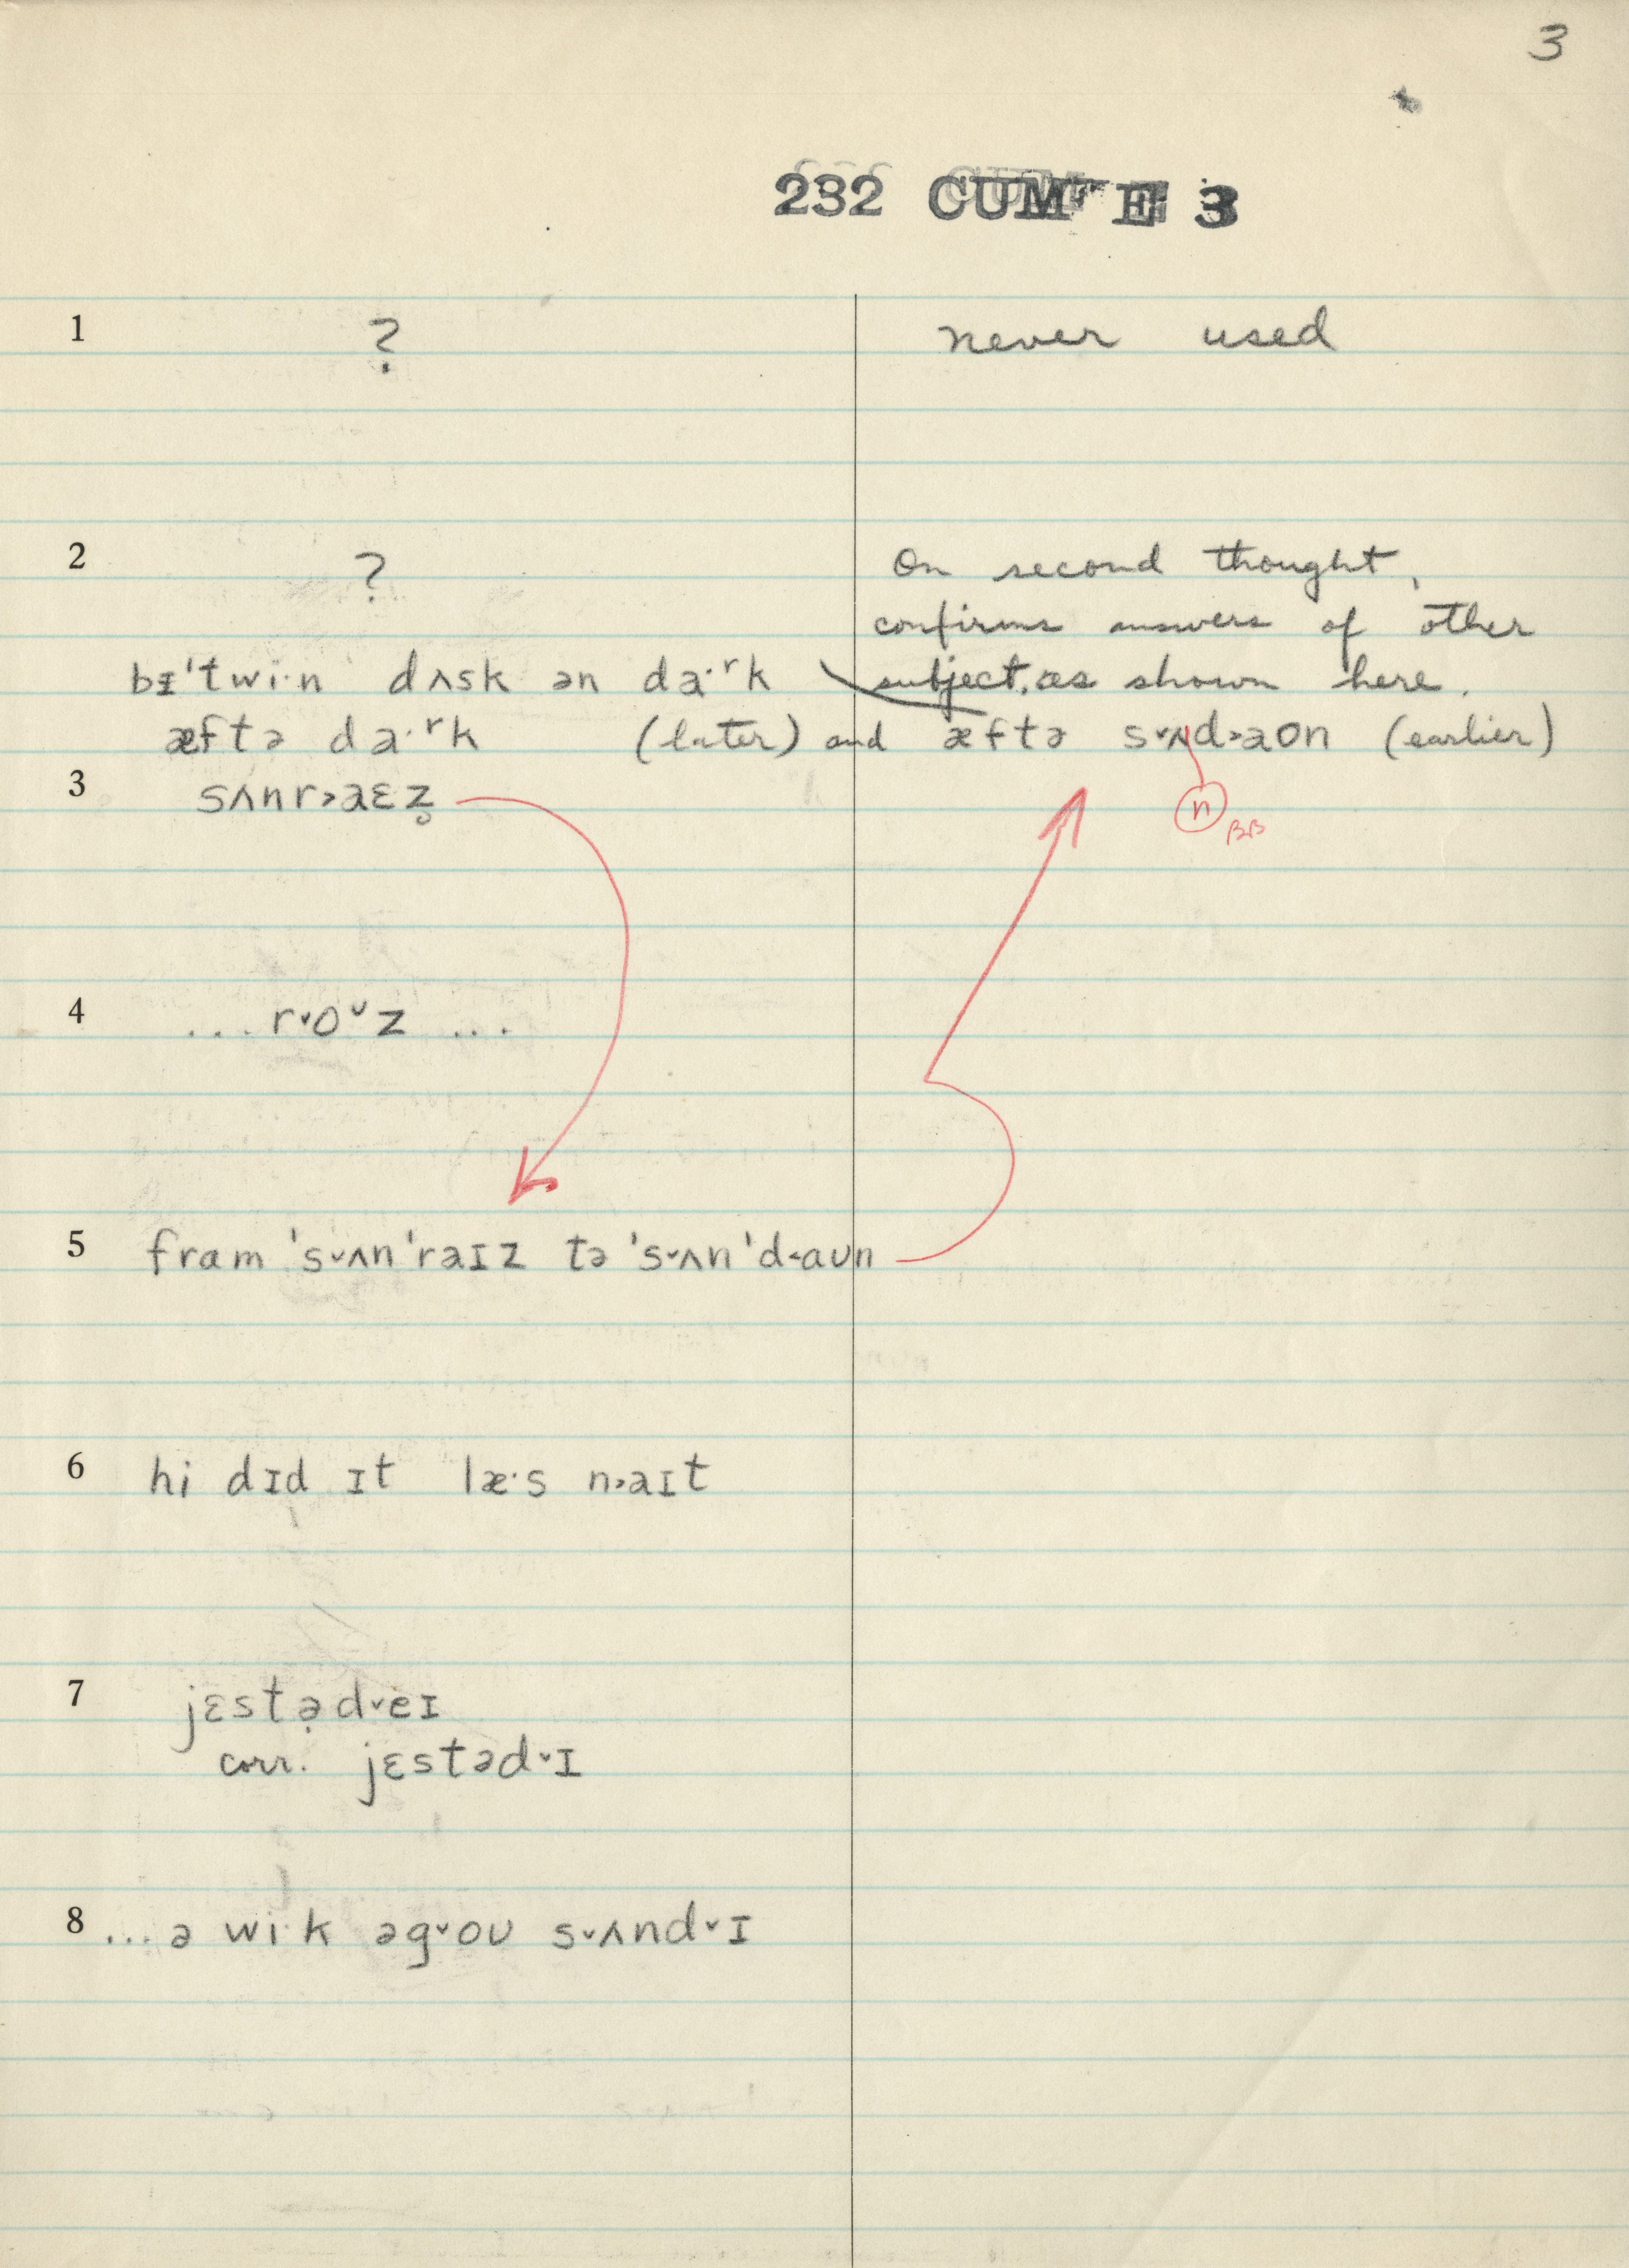 3
232 CUM E 3
1 ? never used
2 ? On second thought,
confirms answers of other
bɪ'twi·n dʌsk ən da·ʳk subject, as shown here.
æftə da·ʳk (later) and æftə s˅ʌd˃aʊn (earlier)
n
BB
3 sʌnr˃aɛz̥
4 ...r˅o᷾z ...
5 fram 's˅ʌn'raɪz tə 's˅ʌn'd˂aʊn
6 hi dɪd ɪt læ·s n˃aɪt
7 jɛstə̣d˅eɪ
corr. jɛstəd˅ɪ
8 ...ə wi·k əg˅oʊ s˅ʌnd˅ɪ